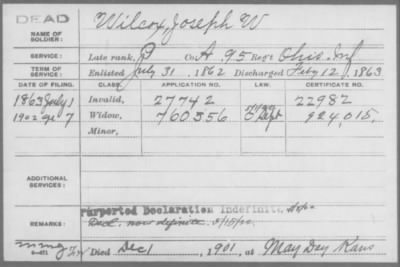 DEAD
Wilcox, Joseph W
NAME OF SOLDIER:
SERVICE: Late rank, P Co. A, 95 Reg't Ohio Inf
TERM OF SERVICE: Enlisted July 31, 1862 Discharged Feby 12, 1863
DATE OF FILING. CLASS. APPLICATION NO. LAW. CERTIFICATE NO.
1863 July 1 Invalid, 27742 22982
1902 7 Widow, 760356 Dept 924,015.
Minor,
ADDITIONAL SERVICES:
Purported Declaration Indefinite
REMARKS: Decl. now definite
Died Dec 1, 1901, at May Day Kans